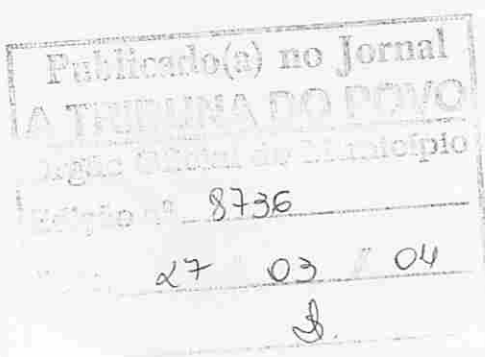 Publicado(a) no Jornal
A TRIBUNA DO POVO
Órgão Oficial do Município
Edição nº 8736
27 / 03 / 04